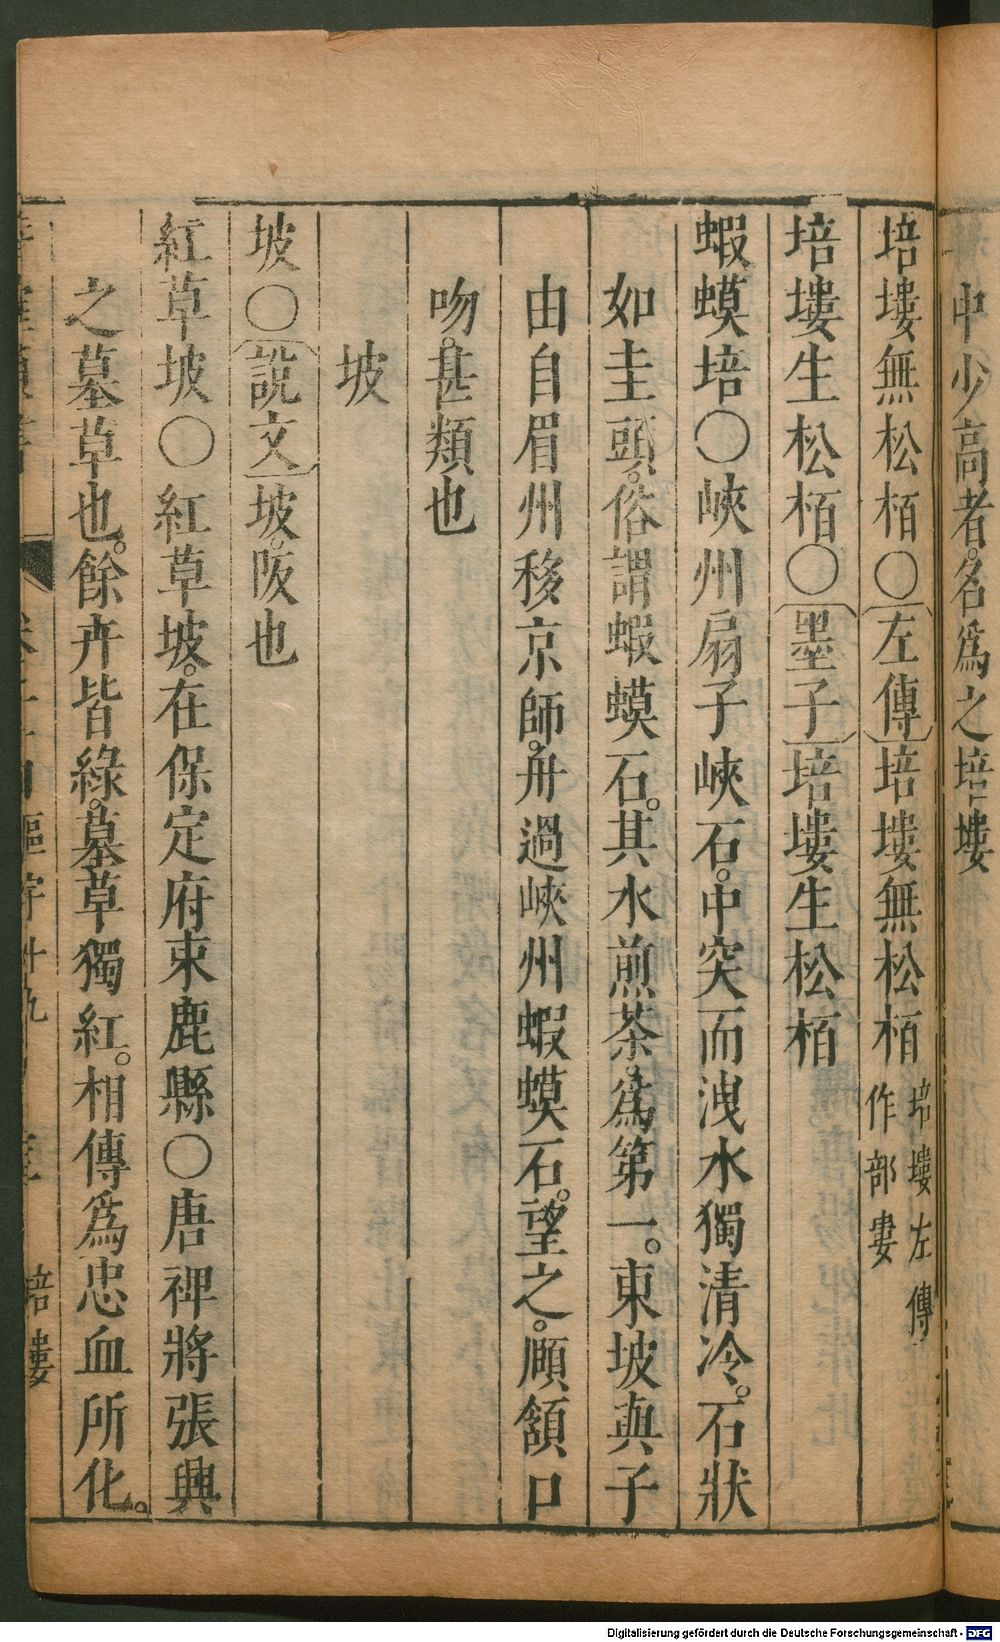 中少高者。名爲之培塿
培塿無松栢○左傳培塿無松栢培塿左傳作部婁
培塿生松栢○墨子培塿生松栢
蝦蟆培○峽州扇子峽石。中突而洩水獨清冷。石狀
如圭頭。俗謂蝦蟆石。其水煎茶。爲第一。東坡與子
由自眉州移京師。舟過峽州蝦蟆石。望之。頤頷口
吻。甚類也
坡
坡○說文坡。阪也
紅草坡○紅草坡。在保定府束鹿縣○唐裨將張興
之墓草也。餘卉皆綠。墓草獨紅。相傳爲忠血所化。
培塿
Digitalisierung gefördert durch die Deutsche Forschungsgemeinschaft - DFG